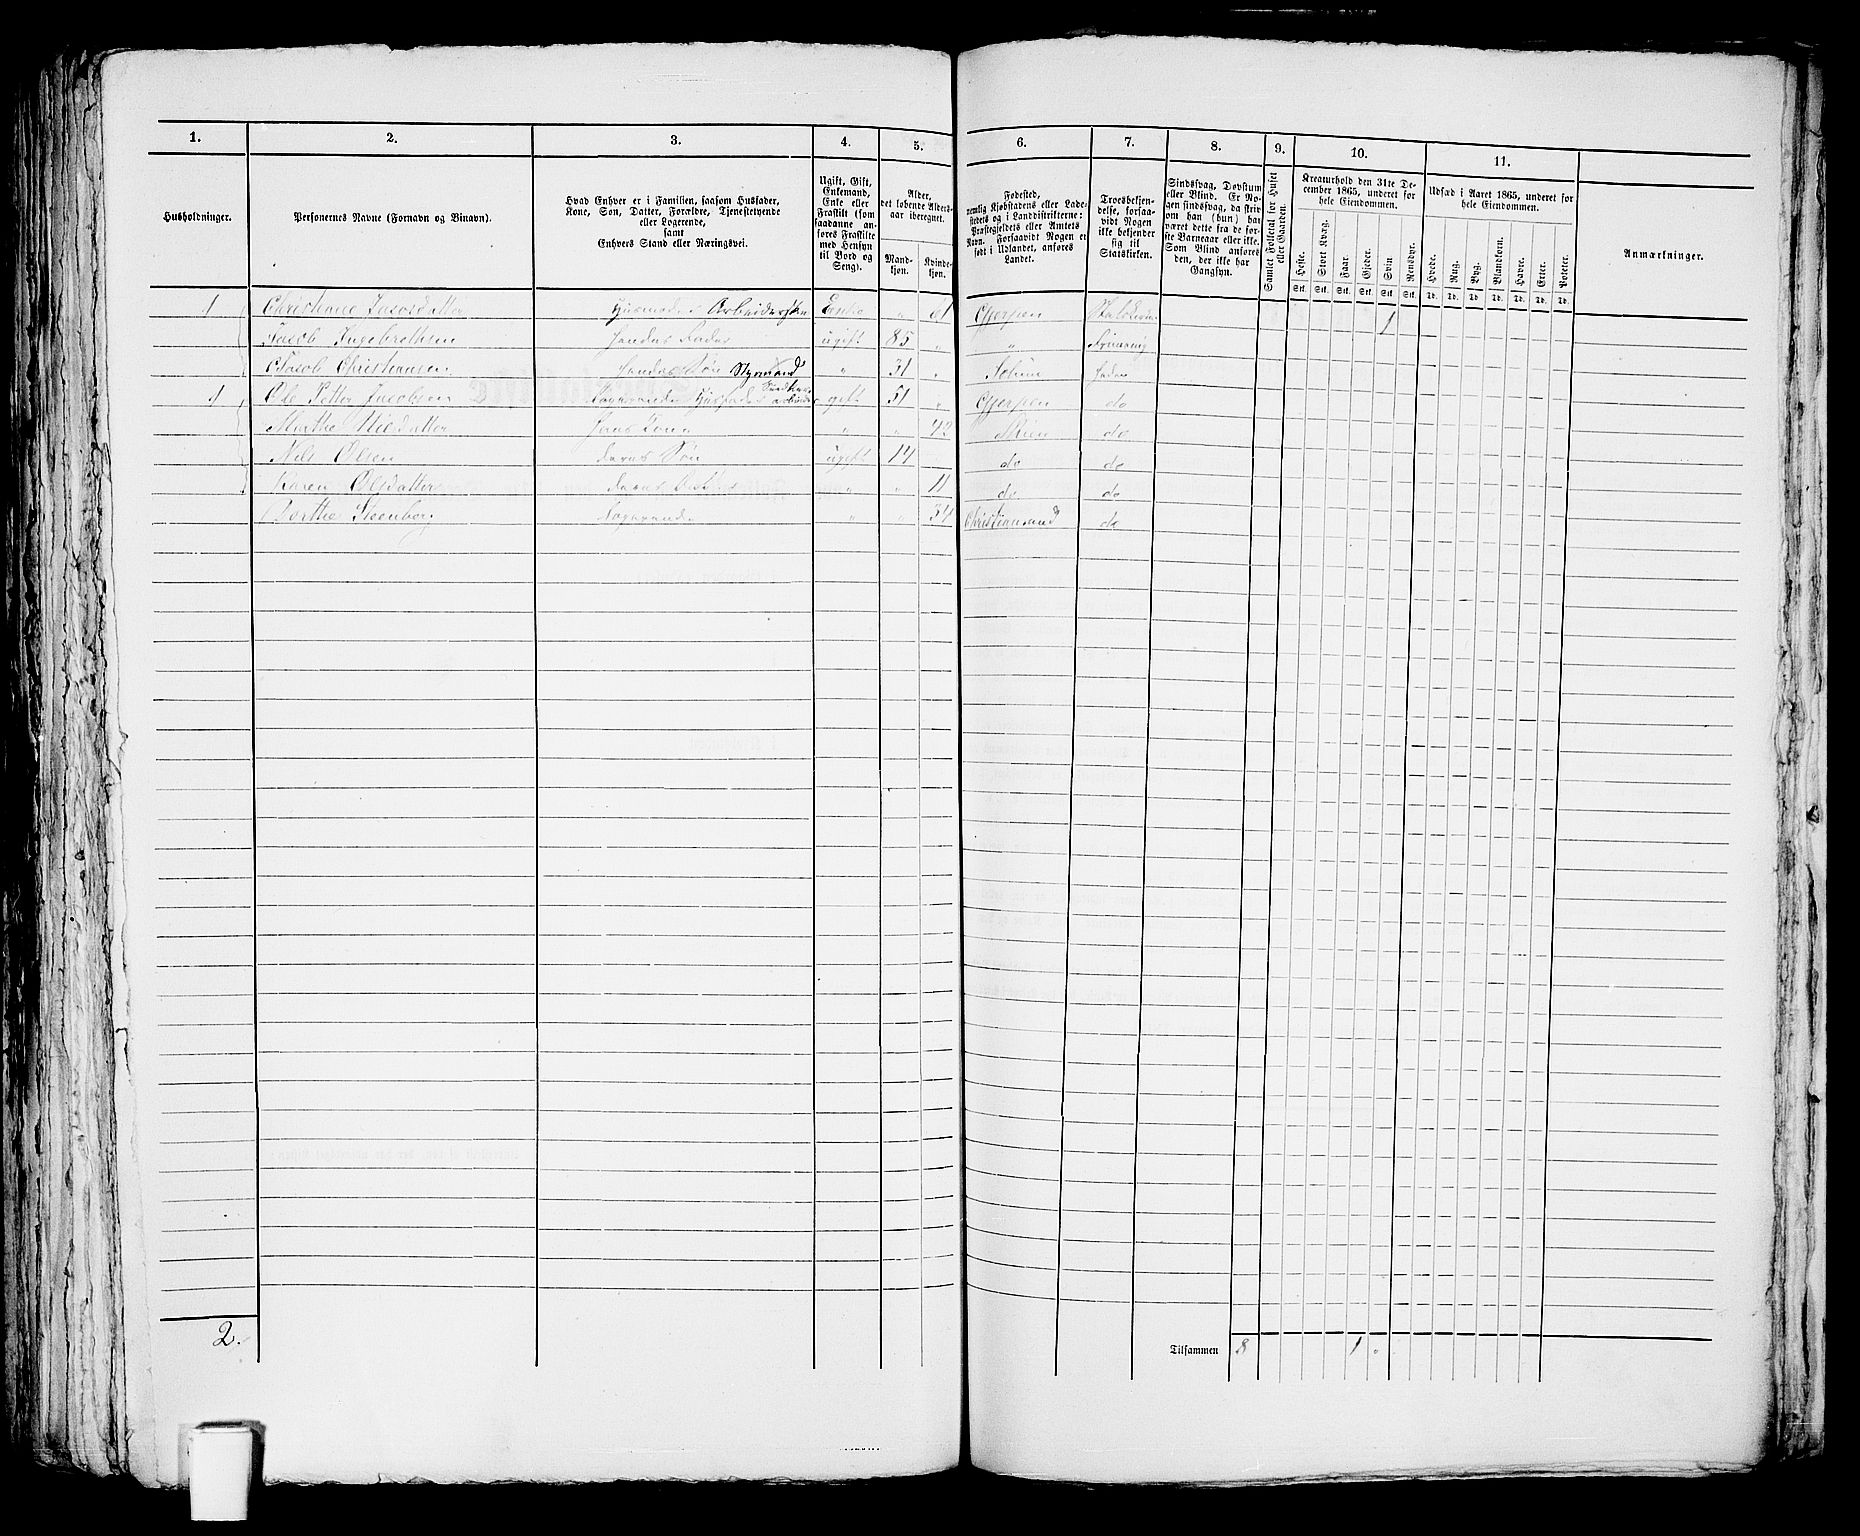 1. 2. 3. 4. 5. 6. 7. 8. 9. 10. 11.
Husholdninger.
Personernes Navne (Fornavn og Binavn).
Hvad Enhver er i Familien, saasom Husfader,
Kone, Søn, Datter, Forældre, Tjenestetyende
eller Logerende,
samt
Enhvers Stand eller Næringsvei.
Ugift, Gift,
Enkemand,
Enke eller
Fraskilt (som
saadanne an-
føres Fraskilte
med Hensyn
til Bord og
Seng).
Alder,
det løbende Alders-
aar iberegnet.
Mand-
kjøn.
Kvinde-
kjøn.
Fødested,
nemlig Kjøbstadens eller Lade-
stedets og i Landdistrikterne:
Præstegjeldets eller Amtets
Navn. Forsaavidt Nogen er
født i Udlandet, anføres
Landet.
Troesbekjen-
delse, forsaa-
vidt Nogen
ikke bekjender
sig til
Statskirken.
Sindssvag, Døvstum
eller Blind. Er No-
gen sindssvag, da skriv
om han (hun) har
været dette fra de før-
ste Barneaar eller ikke.
Som Blind anføres
den, der ikke har
Gangsyn.
Samlet Folketal for Huset
eller Gaarden.
Kreaturhold den 31te De-
cember 1865, underet for
hele Eiendommen.
Heste. Stort Kvæg. Faar. Gjeder. Svin. Rensdyr.
Stk. Stk. Stk. Stk. Stk. Stk.
Udsæd i Aaret 1865, underet for
hele Eiendommen.
Hvede. Rug. Byg. Blandkorn. Havre. Erter. Poteter.
Td. Td. Td. Td. Td. Td. Td.
Anmærkninger.
1 Christiane Jacobsdatter Husmoder Arbeiderske Enke " 61 Gjerpen 1
Jacob Ingebrethsen Hendes Fader ugift 85 " "
Jacob Christiansen Hendes Søn Styrmand " 31 "
1 Ole Petter Jacobsen Logerende Husfader gift 51 " Gjerpen do
Marthe Nilsdatter Hans Kone " " 42 Skien do
Nils Olsen deres Søn ugift 14 do do
Karen Olsdatter deres Datter " " 11 do do
Dorthe Steenberg Logerende " " 34 Christiansand do
2.
Tilsammen 8 1